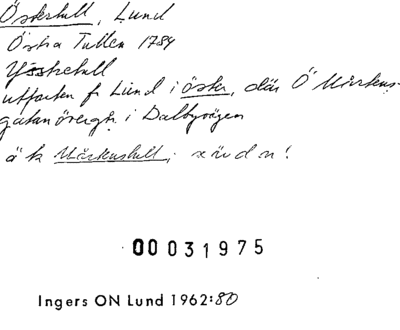 Östertull, Lund
Östra Tullen 1784
Ystretull
utfarten fr Lund i öster, där Ö Mårtens-
gatan övergår i Dalbyvägen
ä k Mårtenstull; se d n!
00031975
Ingers ON Lund 1962:80